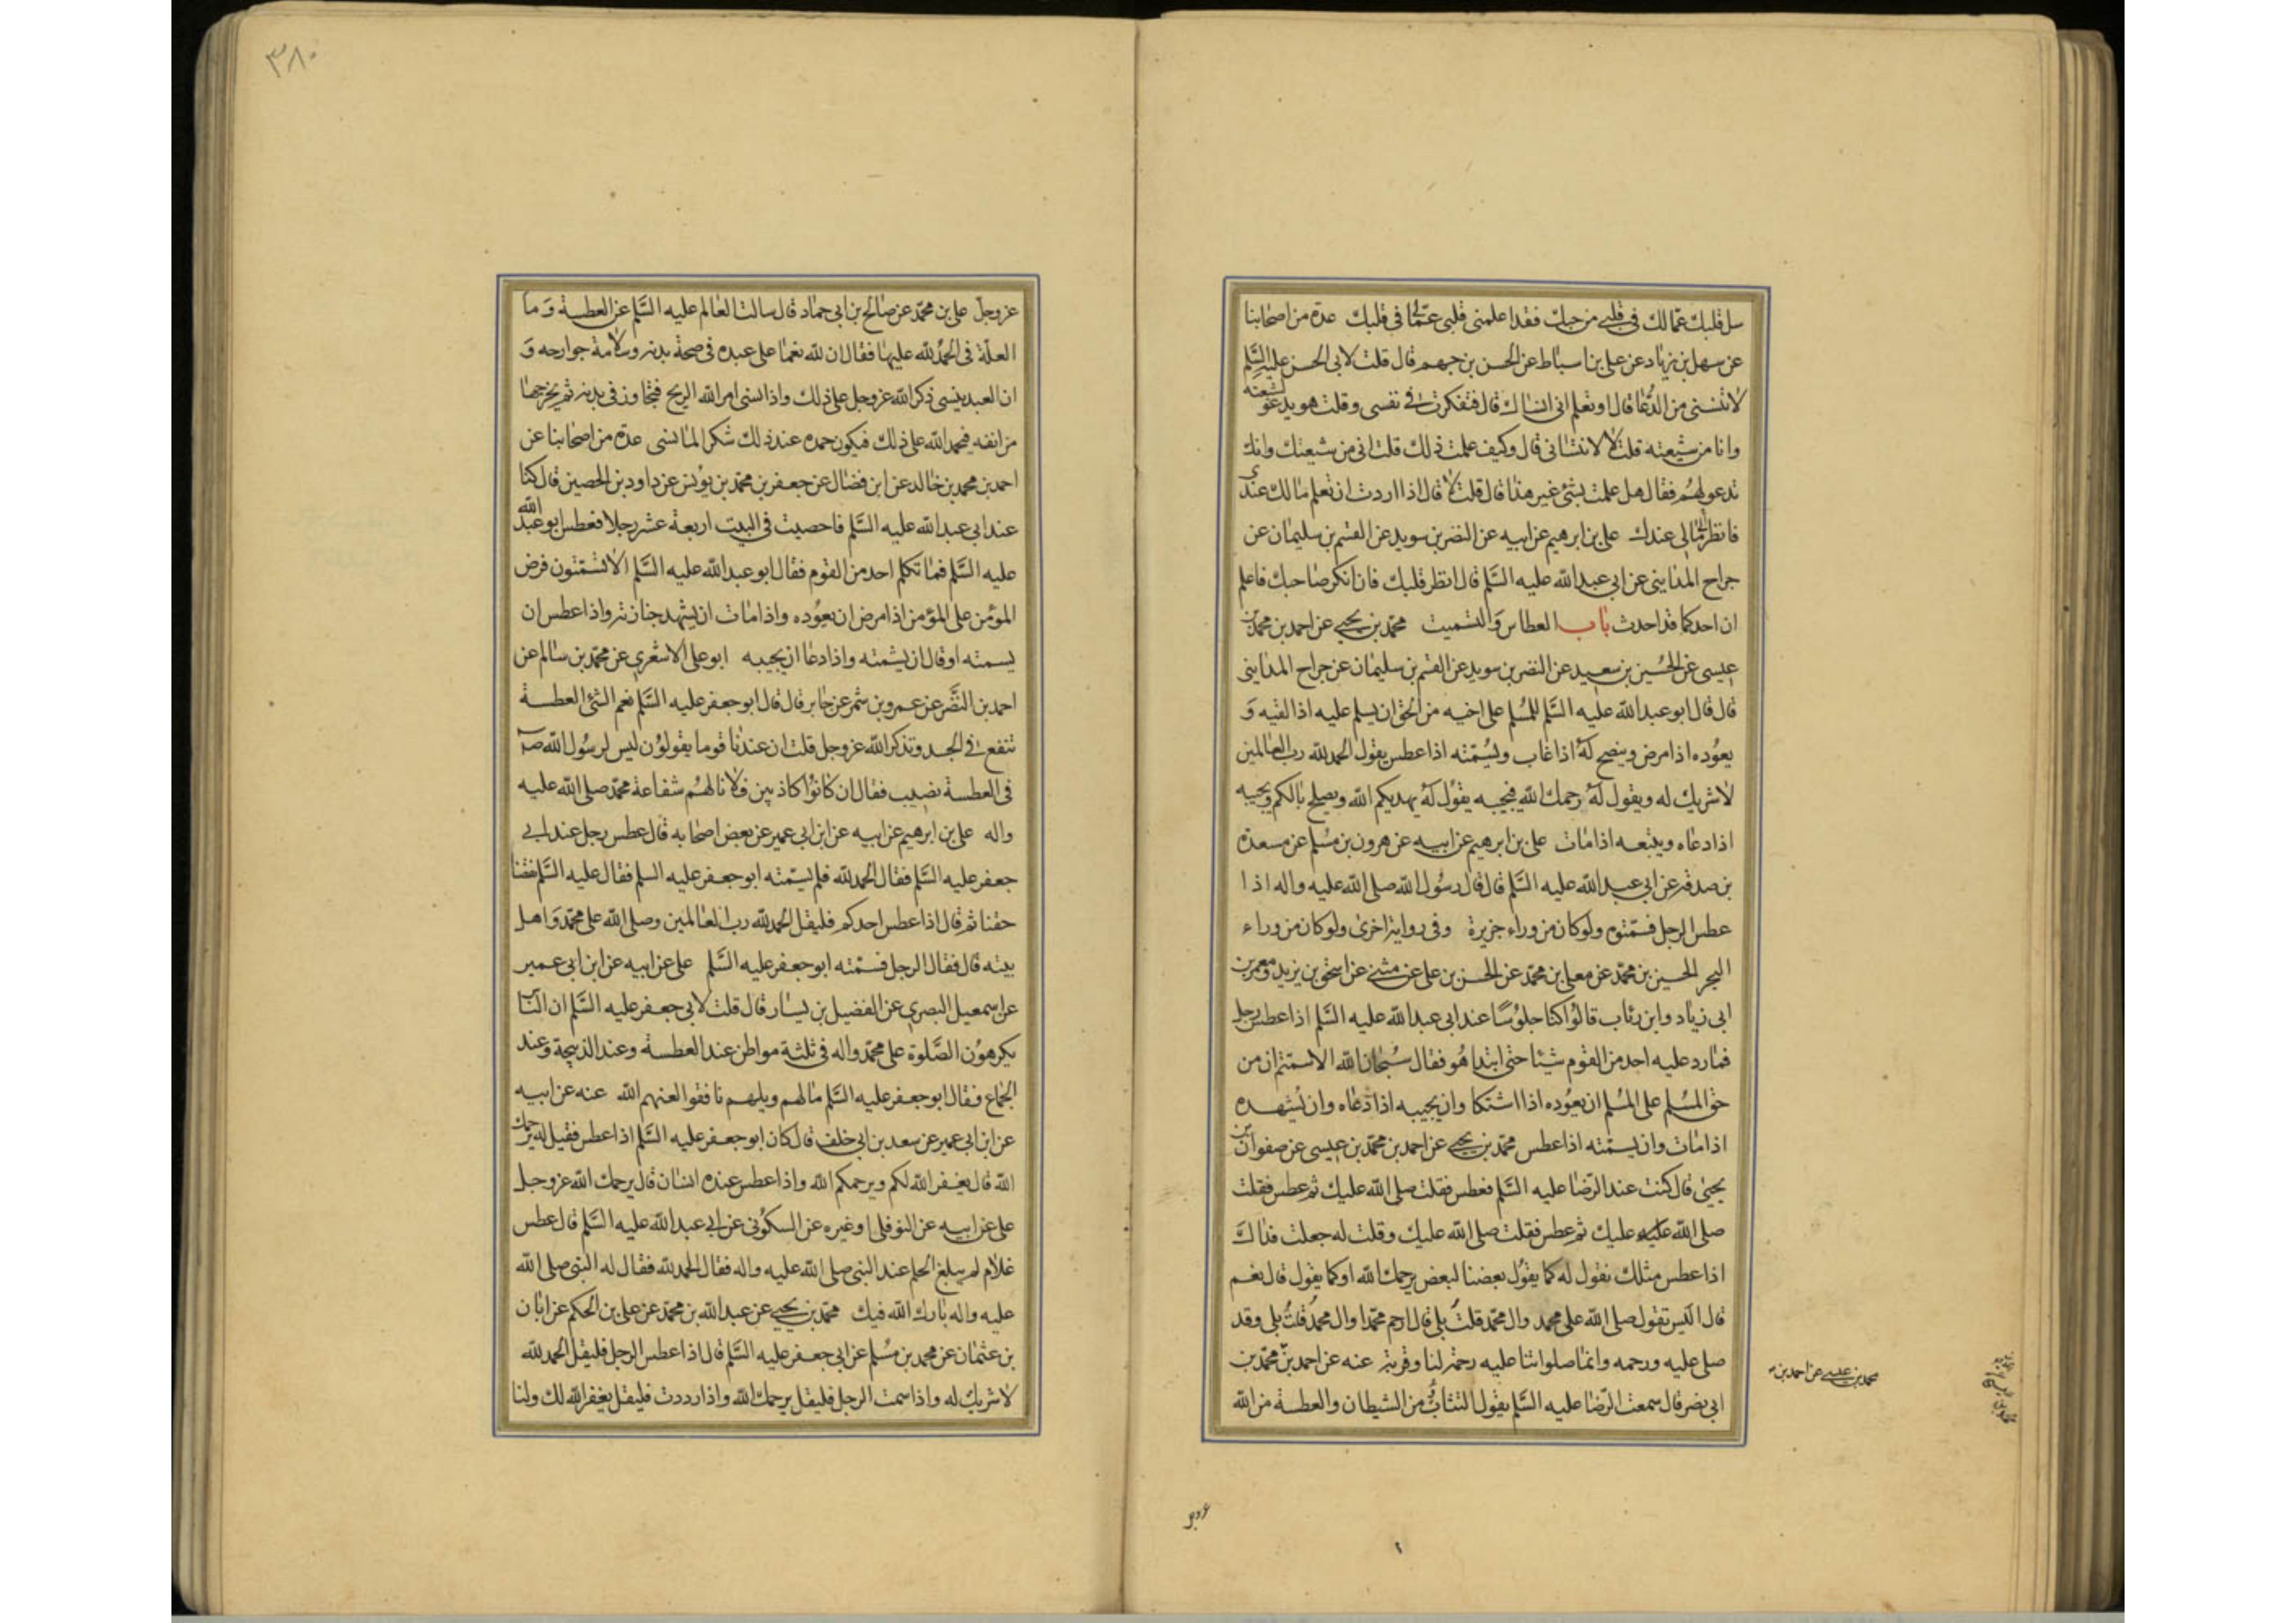 سل قلبك عمالك في قلبي من حبك فقد اعلمني قلبي عمّا في قلبك عدة من اصحابنا
عن سهل بن زياد عن علي بن اسباط عن الحسن بن جهم قال قلت لابي الحسن عليه السّلم
لا تنسني من الدّعا قال او تعلم اني انساك قال فتفكرت في نفسي وقلت هو يدعو لشيعته
وانا من شيعته قلت لا لا تنساني قال وكيف علمت ذلك قلت اني من شيعتك وانك
تدعو لهم فقال هل علمت بشئ غير هذا قال قلت لا قال اذا اردت ان تعلم مالك عندي
فانظر الى مالي عندك علي بن ابرهيم عن ابيه عن النضر بن سويد عن القسم بن سليمان عن
جراح المدايني عن ابي عبد الله عليه السّلم قال انظر قلبك فان انكر صاحبك فاعلم
ان احدكما قد احدث باب العطاس والتسميت محمّد بن يحيى عن احمد بن محمد بن
عيسى عن الحسين بن سعيد عن النضر بن سويد عن القسم بن سليمان عن جراح المدايني
قال قال ابو عبد الله عليه السّلم للمسلم على اخيه من الحق ان يسلم عليه اذا لقيه و
يعوده اذا مرض وينصح له اذا غاب ويسمّته اذا عطس يقول الحمد لله رب العالمين
لا شريك له ويقول له رحمك الله فيجيبه يقول له يهديكم الله ويصلح بالكم ويجيبه
اذا دعاه ويتبعه اذا مات علي بن ابرهيم عن ابيه عن هرون بن مسلم عن مسعدة
بن صدقة عن ابي عبد الله عليه السّلم قال قال رسول الله صلى الله عليه واله اذا
عطس الرجل فسمّتوه ولو كان من وراء جزيرة وفي رواية اخرى ولو كان من وراء
البحر الحسين بن محمّد عن معلى بن محمّد عن الحسن بن علي عن مثنى عن اسحق بن يزيد ومعمر بن
ابي زياد وابن رئاب قالوا كنا جلوسًا عند ابي عبد الله عليه السّلم اذا عطس رجل
فما رد عليه احد من القوم شيئا حتى ابتدا هو فقال سبحان الله الا سمتم ان من
حق المسلم على المسلم ان يعوده اذا اشتكا وان يجيبه اذا دعاه وان يشهده
اذا مات وان يسمته اذا عطس محمّد بن يحيى عن احمد بن محمّد بن عيسى عن صفوان بن
يحيى قال كنت عند الرّضا عليه السّلم فعطس فقلت صلى الله عليك ثم عطس فقلت
صلى الله عليه عليك ثم عطس فقلت صلى الله عليك وقلت له جعلت فداك
اذا عطس مثلك نقول له كما يقول بعضنا لبعض يرحمك الله او كما يقول قال نعم
قال اليس تقول صلى الله على محمد وال محمّد قلت بلى قال ارحم محمّدا وال محمّد قلت بلى وقد
صلى عليه ورحمه وانما صلواتنا عليه رحمة لنا وقربة عنه عن احمد بن محمّد بن
ابي نصر قال سمعت الرّضا عليه السّلم يقول التثاؤب من الشيطان والعطسة من الله
محمد بن عيسى عن احمد بن
٣٨٠
عز وجل علي بن محمّد عن صالح بن ابي حماد قال سالت العالم عليه السّلم عن العطسة وما
العلّة في الحمد لله عليها فقال ان لله نعما على عبده في صحة بدنه وسلامة جوارحه و
ان العبد ينسى ذكر الله عز وجل على ذلك واذا نسي امر الله الريح فتجاوز في بدنه ثم يخرجها
من انفه فيحمد الله على ذلك فيكون حمده عند ذلك شكر الما نسي عدة من اصحابنا عن
احمد بن محمد بن خالد عن ابن فضال عن جعفر بن محمّد بن يونس عن داود بن الحصين قال كنا
عند ابي عبد الله عليه السّلم فاحصيت في البيت اربعة عشر رجلا فعطس ابو عبد الله
عليه السّلم فما تكلم احد من القوم فقال ابو عبد الله عليه السّلم الا تشمّتون فرض
المؤمن على المؤمن اذا مرض ان يعوده واذا مات ان يشهد جنازته واذا عطس ان
يسمته او قال ان يشمته واذا دعا ان يجيبه ابو علي الاشعري عن محمّد بن سالم عن
احمد بن النّضر عن عمرو بن شمر عن جابر قال قال ابو جعفر عليه السّلم نعم الشئ العطسة
تنفع في الجسد وتذكر الله عز وجل قلت ان عندنا قوما يقولون ليس لرسول الله ص
في العطسة نصيب فقال ان كانوا كاذبين فلا نالهم شفاعة محمّد صلى الله عليه
واله علي بن ابرهيم عن ابيه عن ابن ابي عمير عن بعض اصحابه قال عطس رجل عند ابي
جعفر عليه السّلم فقال الحمد لله فلم يسمّته ابو جعفر عليه السلم فقال عليه السّلم نقصنا
حقنا ثم قال اذا عطس احدكم فليقل الحمد لله رب العالمين وصلى الله على محمّد واهل
بيته قال فقال الرجل فسمّته ابو جعفر عليه السّلم علي عن ابيه عن ابن ابي عمير
عن اسمعيل البصري عن الفضيل بن يسار قال قلت لابي جعفر عليه السّلم ان الناس
يكرهون الصّلوة على محمّد واله في ثلثة مواطن عند العطسة وعند الذبيحة وعند
الجماع فقال ابو جعفر عليه السّلم ما لهم ويلهم نافقوا لعنهم الله عنه عن ابيه
عن ابن ابي عمير عن سعد بن ابي خلف قال كان ابو جعفر عليه السّلم اذا عطس فقيل له يرحمك
الله قال يغفر الله لكم ويرحمكم الله واذا عطس عنده انسان قال يرحمك الله عز وجل
علي عن ابيه عن النوفلي او غيره عن السكوني عن ابي عبد الله عليه السّلم قال عطس
غلام لم يبلغ الحلم عند النبي صلى الله عليه واله فقال الحمد لله فقال له النبي صلى الله
عليه واله بارك الله فيك محمّد بن يحيى عن عبد الله بن محمّد عن علي بن الحكم عن ابان
بن عثمان عن محمد بن مسلم عن ابي جعفر عليه السّلم قال اذا عطس الرجل فليقل الحمد لله
لا شريك له واذا سمت الرجل فليقل يرحمك الله واذا رددت فليقل يغفر الله لك ولنا